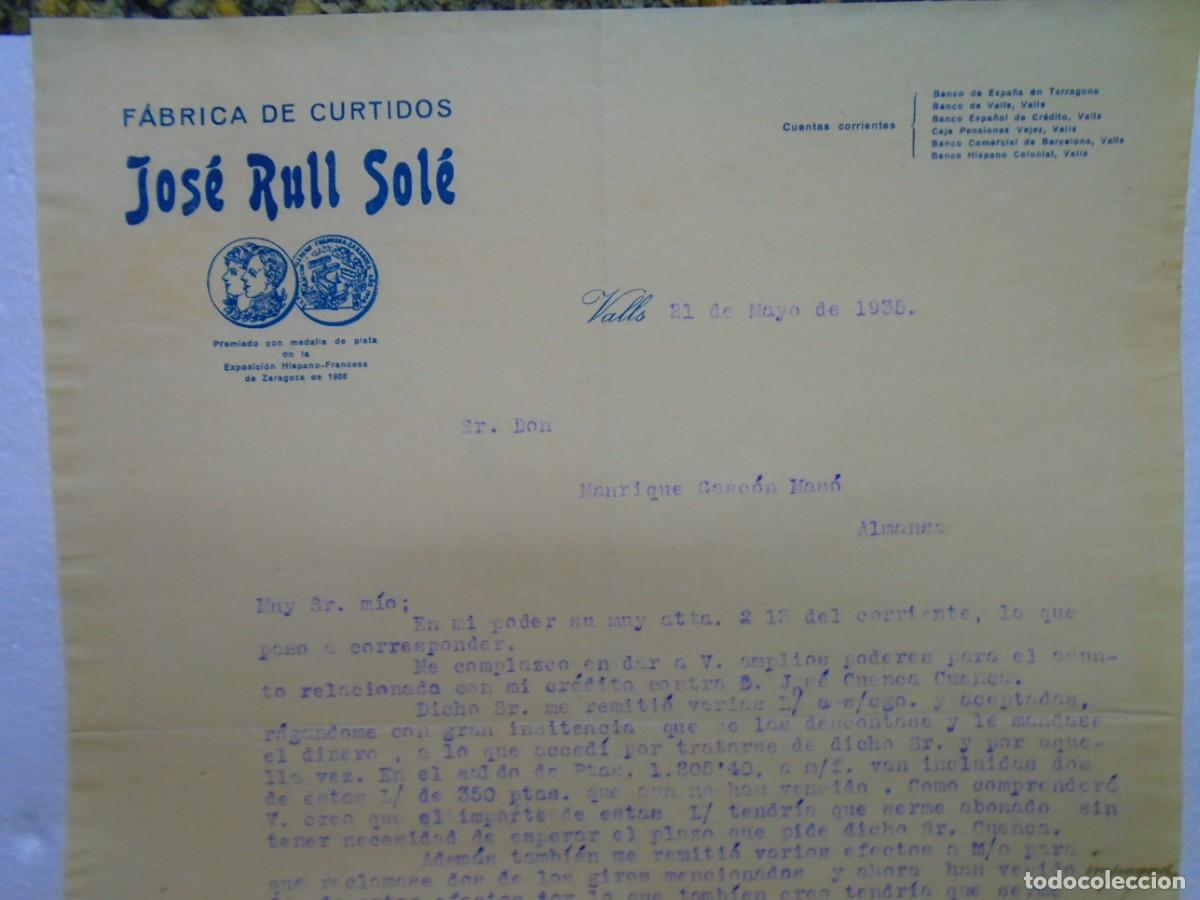 FÁBRICA DE CURTIDOS
José Rull Solé
Premiado con medalla de plata
en la
Exposición Hispano-Francesa
de Zaragoza de 1908
Cuentas corrientes
Banco de España en Tarragona
Banco de Valls, Valls
Banco Español de Crédito, Valls
Caja Pensiones Vejez, Valls
Banco Comercial de Barcelona, Valls
Banco Hispano Colonial, Valls
Valls 21 de Mayo de 1935.
Sr. Don
Manrique Gascón Masó
Almansa
Muy Sr. mío;
En mi poder su muy atta. 2 13 del corriente, la que
paso a corresponder.
Me complazco en dar a V. amplios poderes para el asun-
to relacionado con mi crédito contra D. José Cuenca Cuenca.
Dicho Sr. me remitió varias L/ a s/cgo. y aceptadas,
rógandome con gran insitencia que se las descontase y le mandase
el dinero , a lo que accedí por tratarse de dicho Sr. y por aque-
lla vez. En el saldo de Ptas. 1.205'40, a m/f. van incluidas dos
de estas L/ de 350 ptas. que aun no han vencido . Como comprenderá
V. creo que el importe de estas L/ tendría que serme abonado sin
tener necesidad de esperar el plazo que pide dicho Sr. Cuenca.
Además también me remitió varios efectos a M/o para
que reclamase dos de los giros mencionados y ahora han venido
efectos por lo que tambien creo tendría que serme
todocoleccion